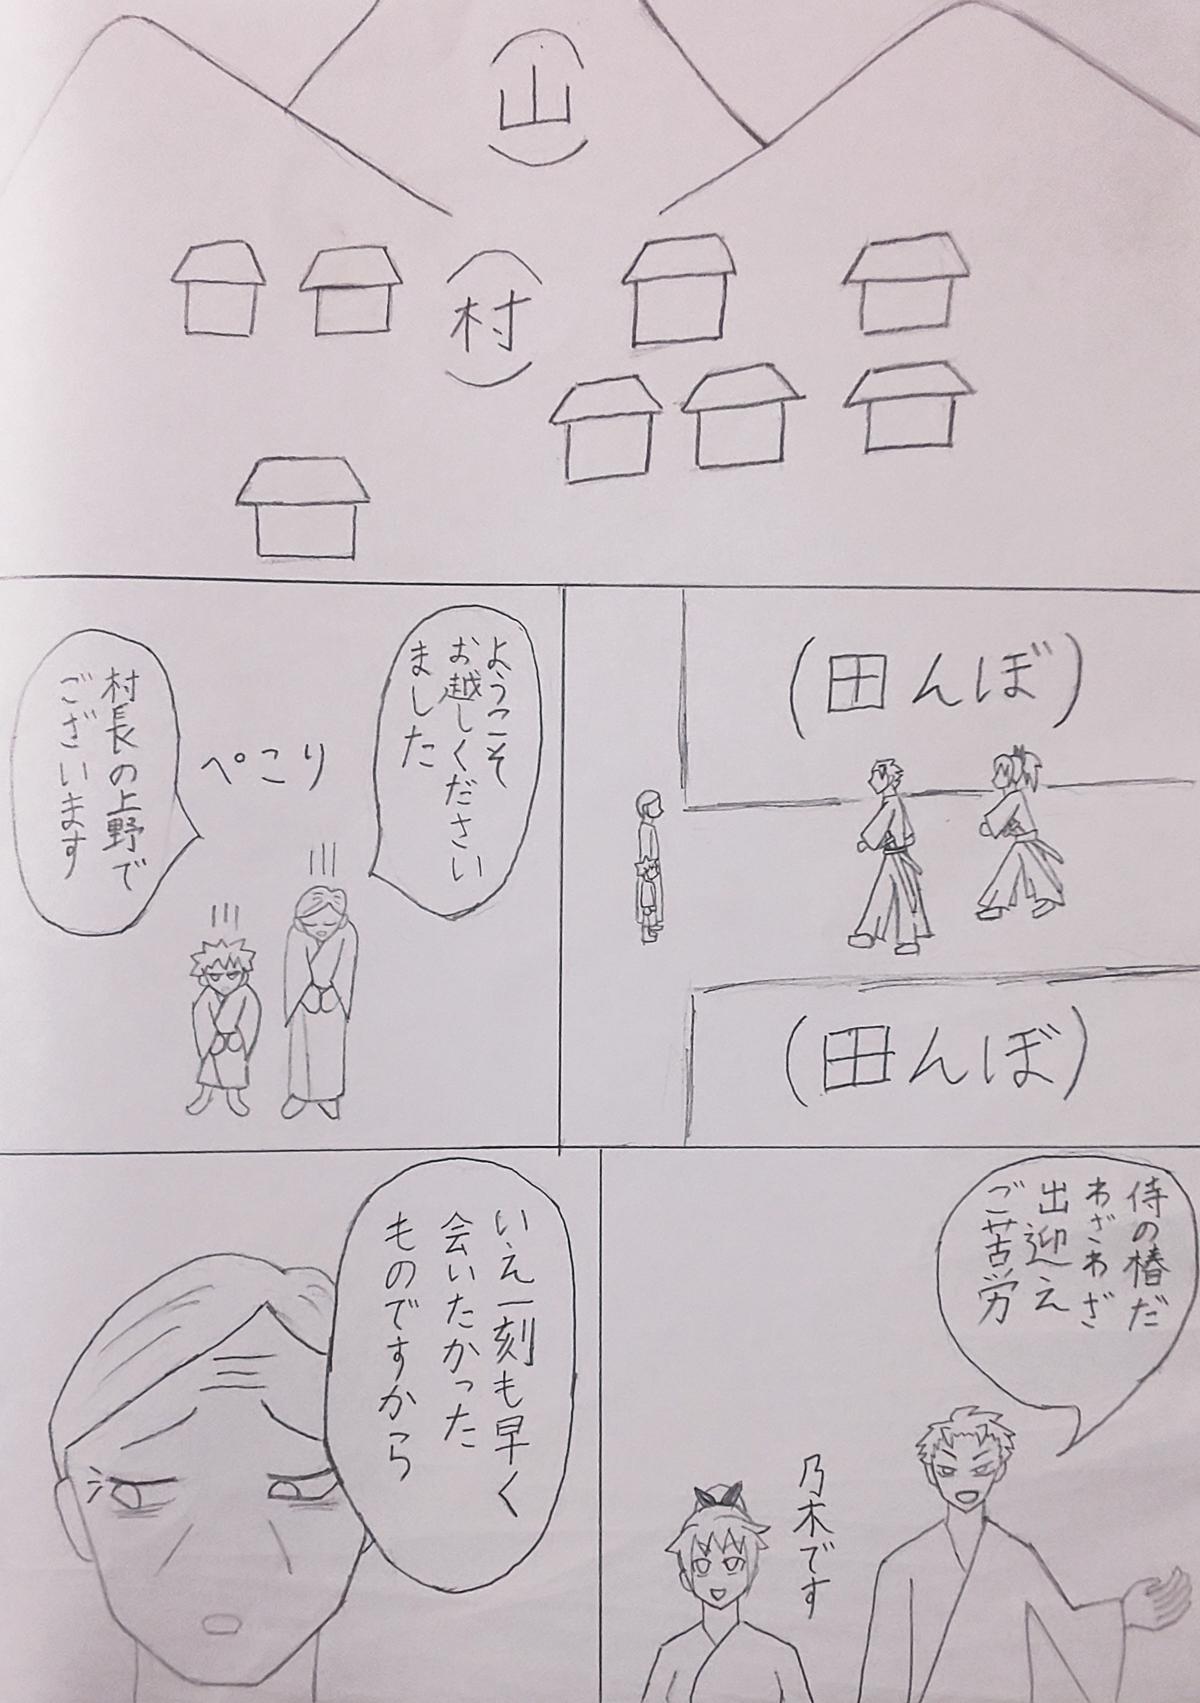 (山)
(村)
(田んぼ)
(田んぼ)
ようこそ
お越しください
ました
ぺこり
村長の上野で
ございます
侍の椿だ
わざわざ
出迎え
ご苦労
乃木です
いえ一刻も早く
会いたかった
ものですから